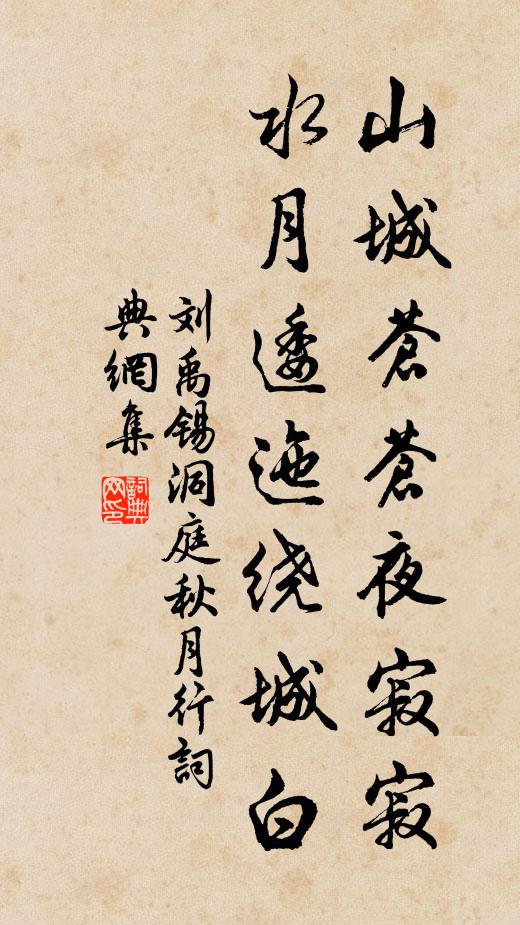 山城苍苍夜寂寂
水月逶迤绕城白
刘禹锡洞庭秋月行詞
典網集
詞典网印